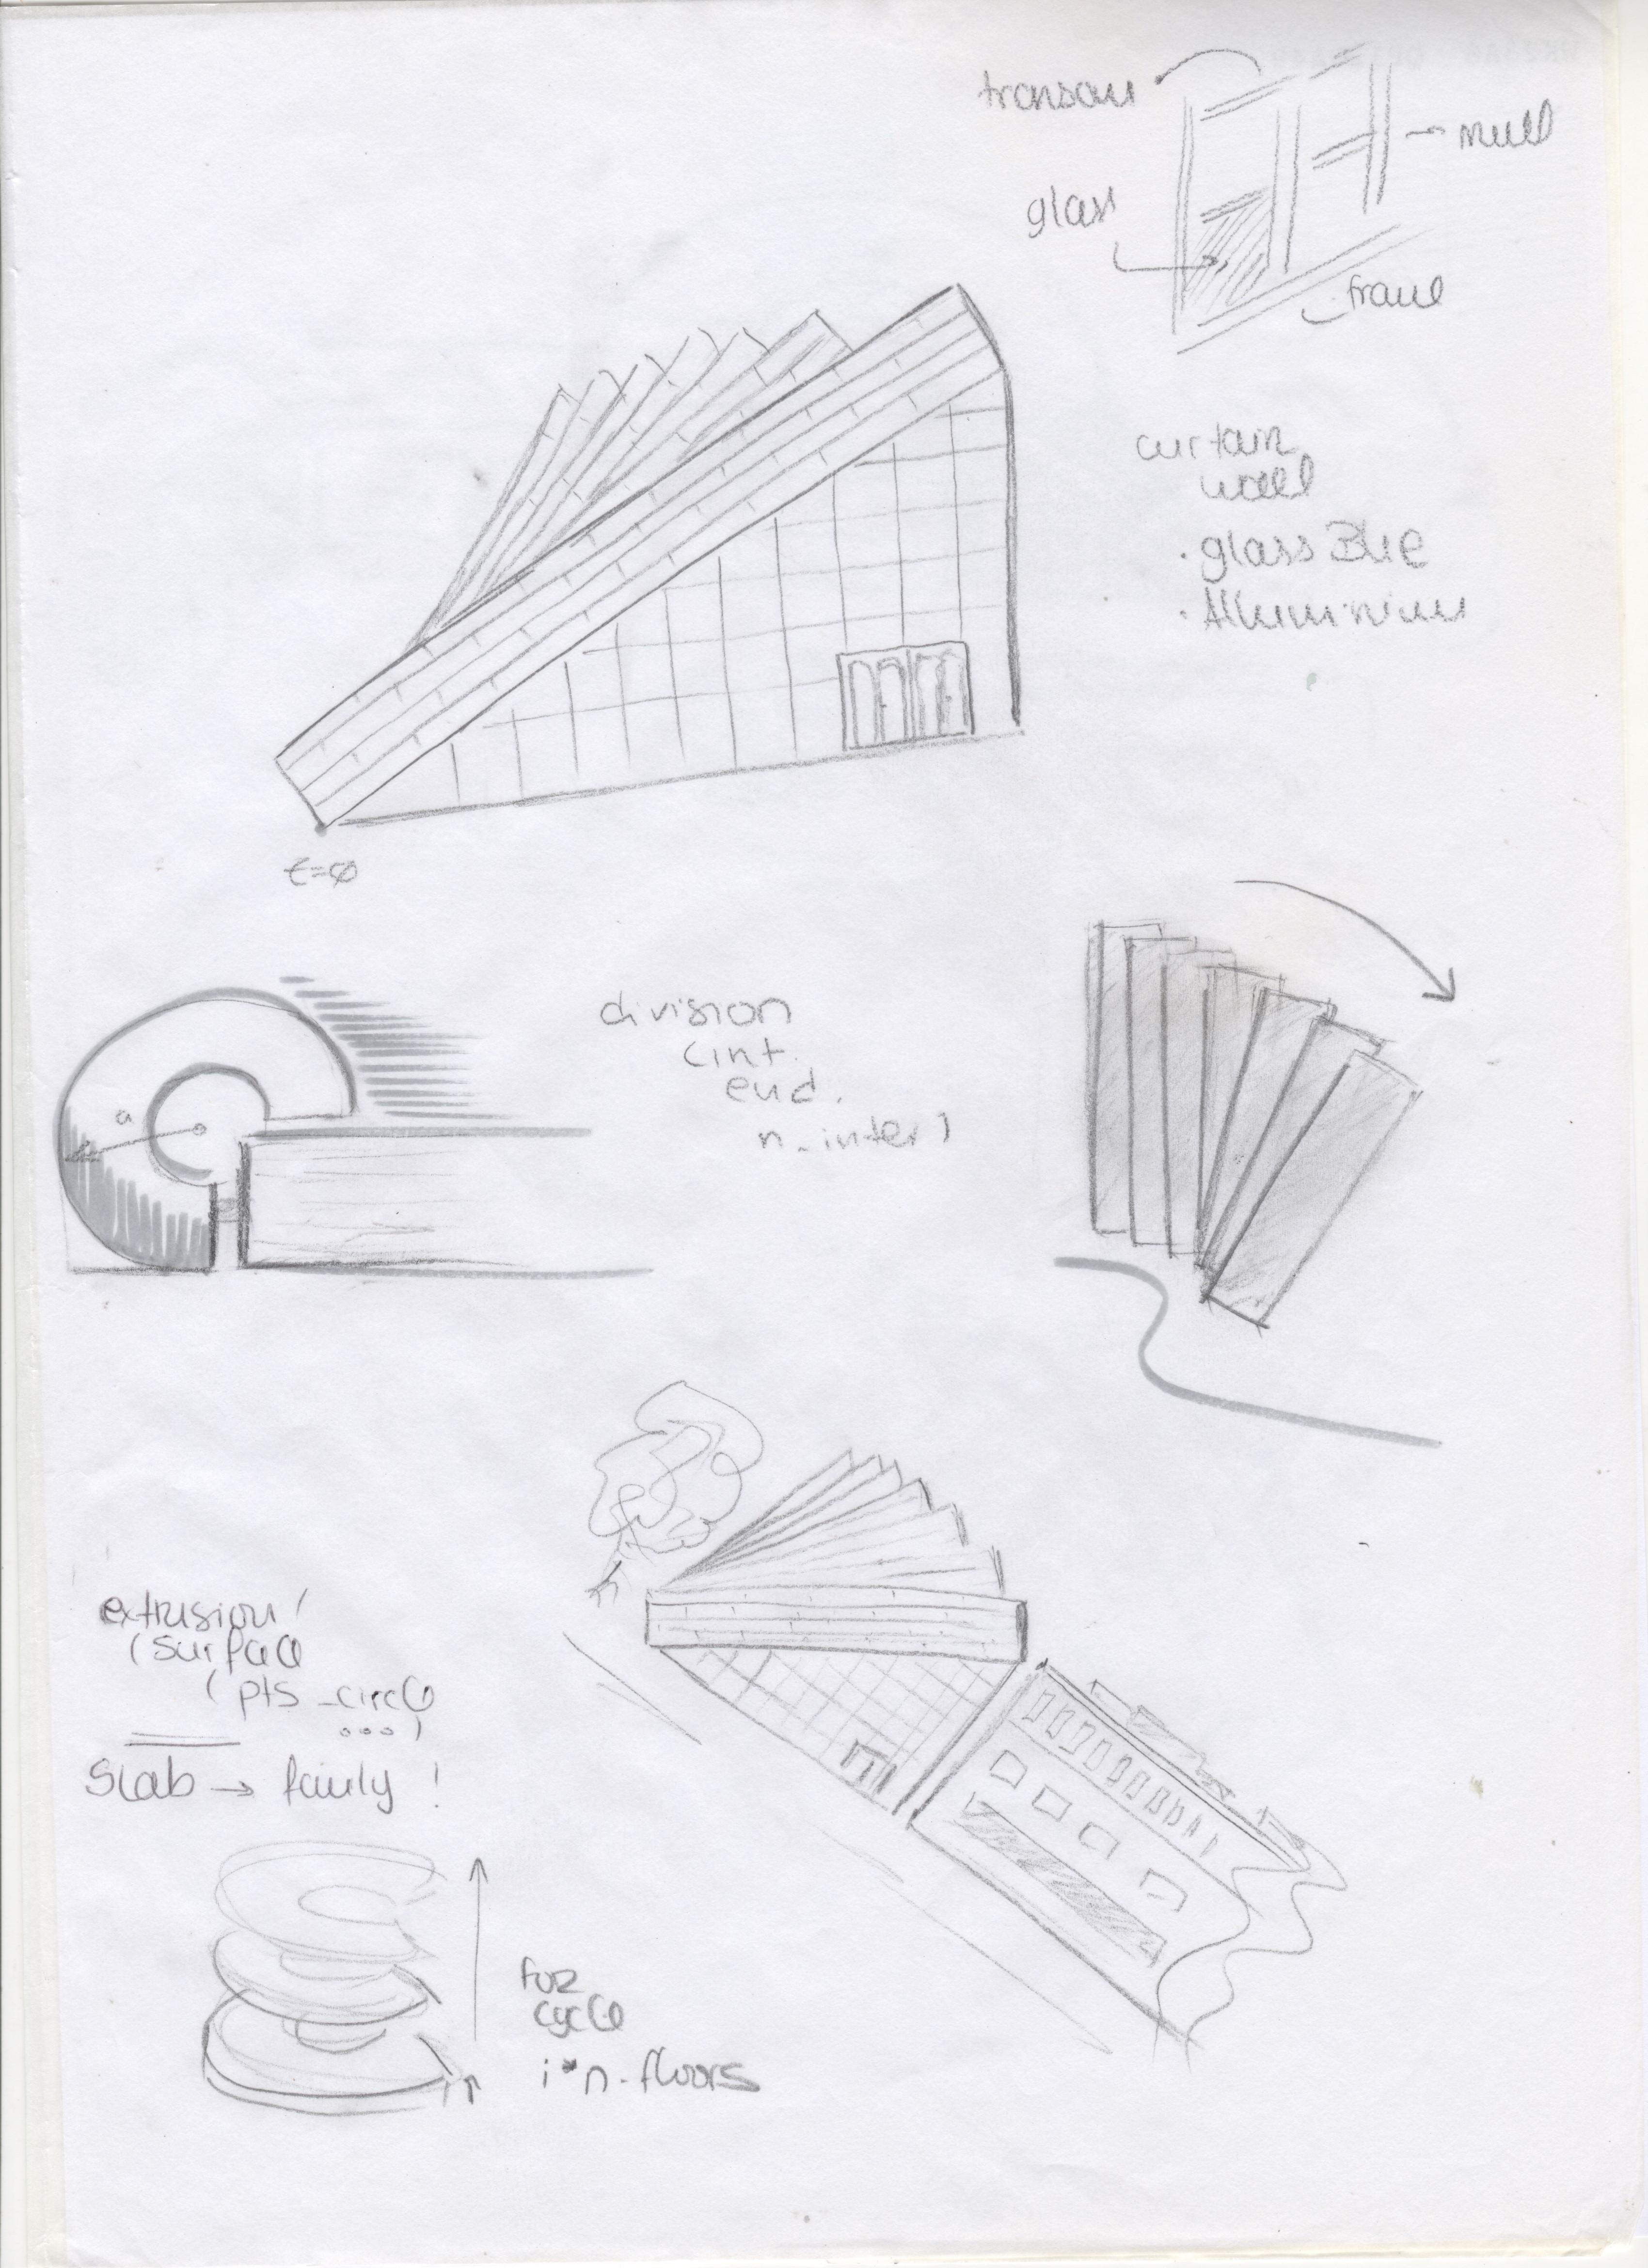 transom
mull
glass
frame
curtain
wall
· glass Blue
· Alluminium
division
(int.
end.
n_inter)
extrusion (
(surface
( pts_circle
...)
Slab → family !
for
cycle
i*n-floors